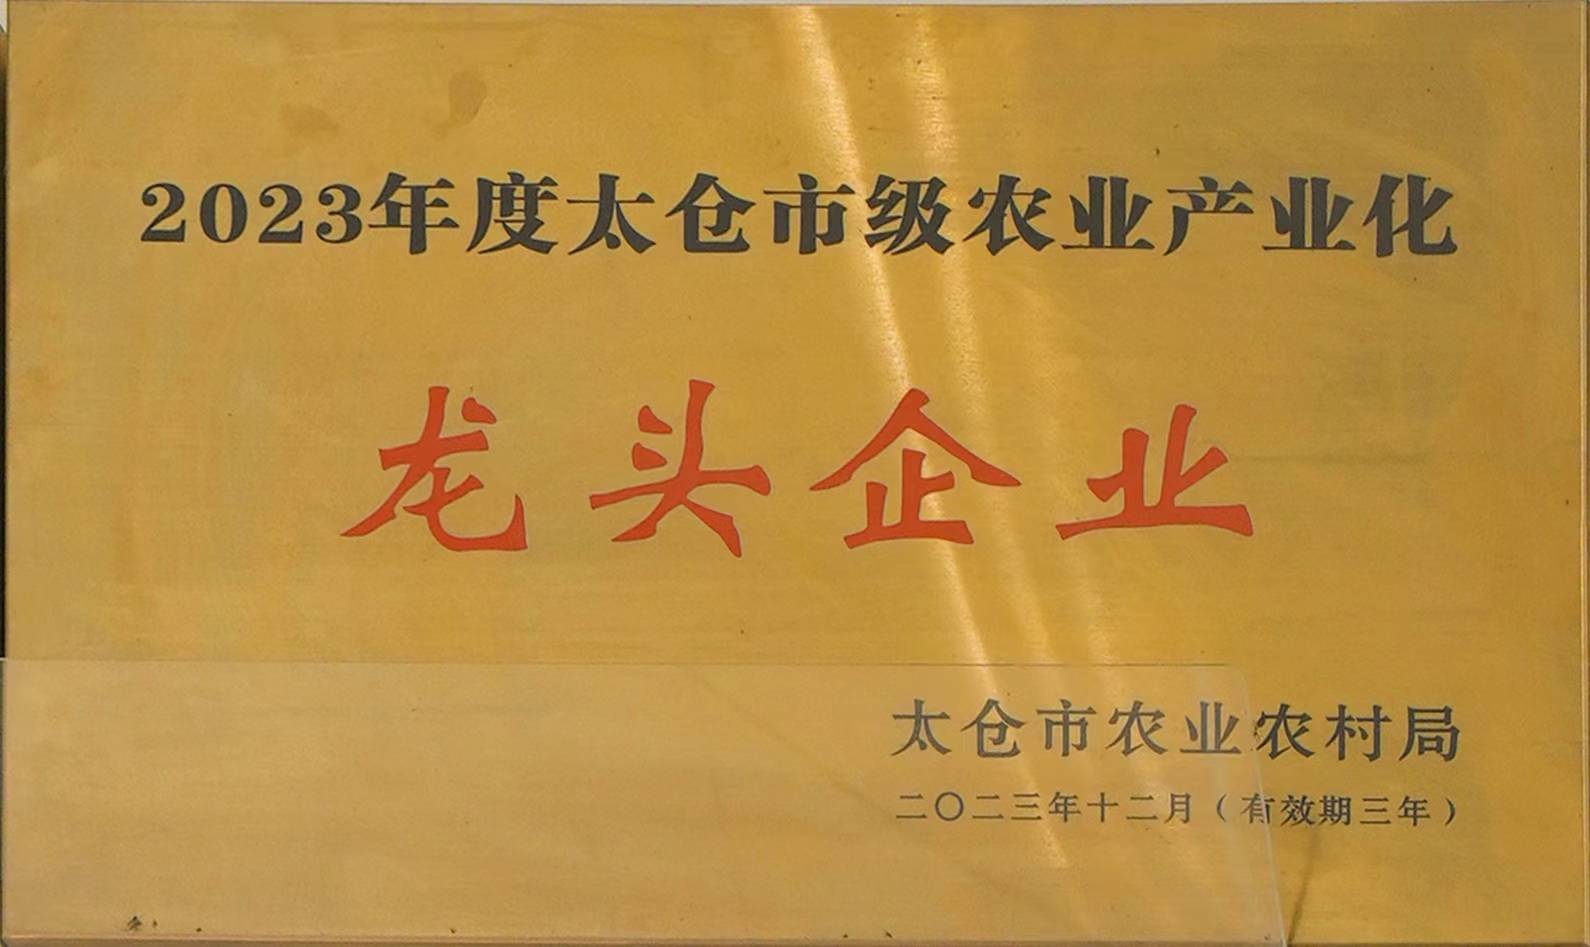 2023年度太仓市级农业产业化
龙头企业
太仓市农业农村局
二〇二三年十二月（有效期三年）